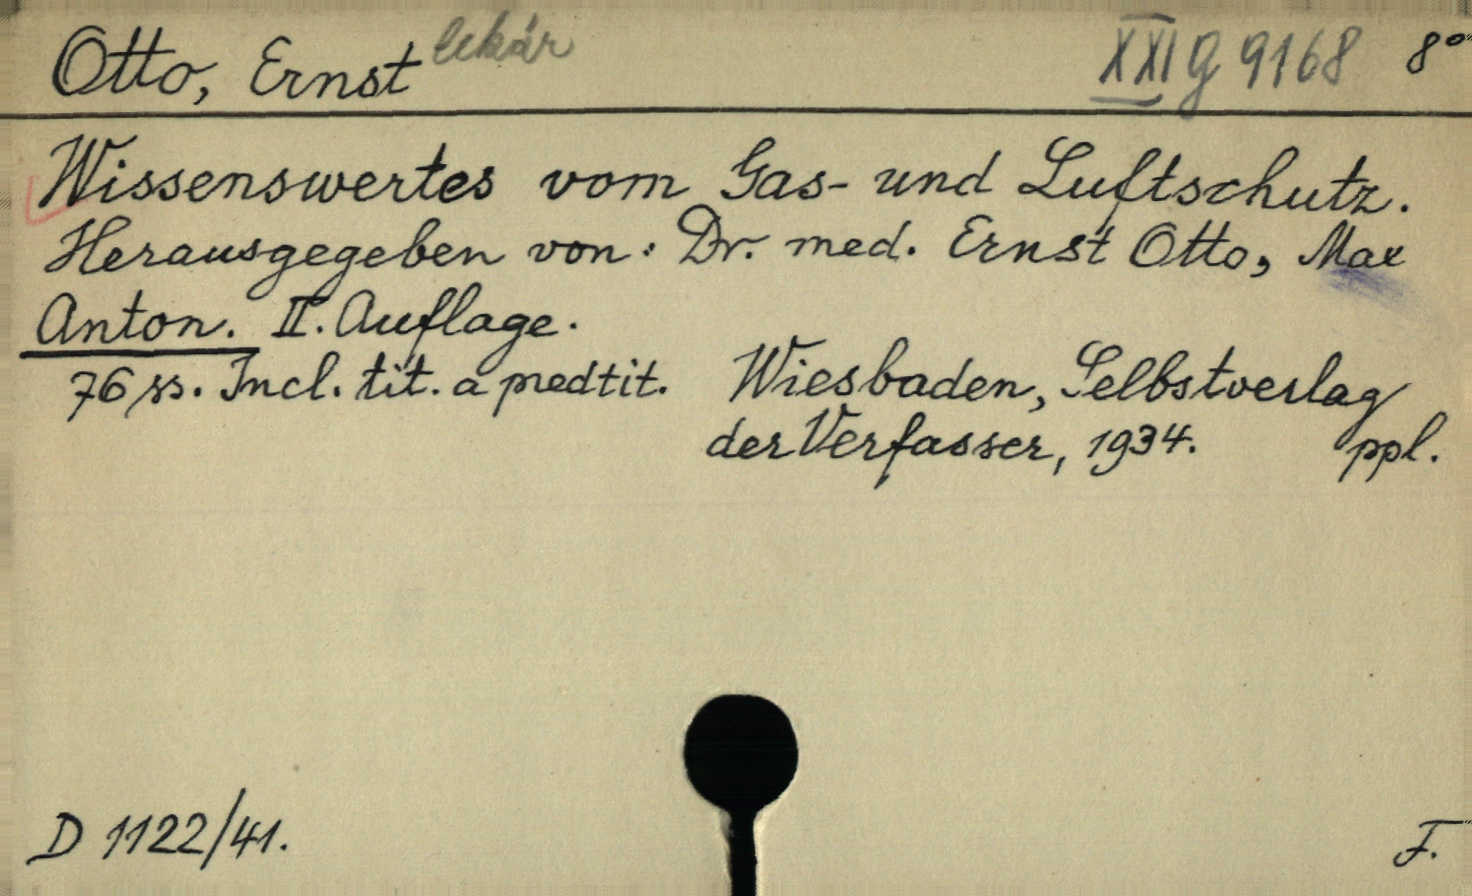 Otto, Ernst lekár XXI G 9168 8°
Wissenswertes vom Gas- und Luftschutz.
Herausgegeben von: Dr. med. Ernst Otto, Max
Anton. II. Auflage.
76 ss. Incl. tit. a predtit. Wiesbaden, Selbstverlag
der Verfasser, 1934. ppl.
D 1122/41. F.